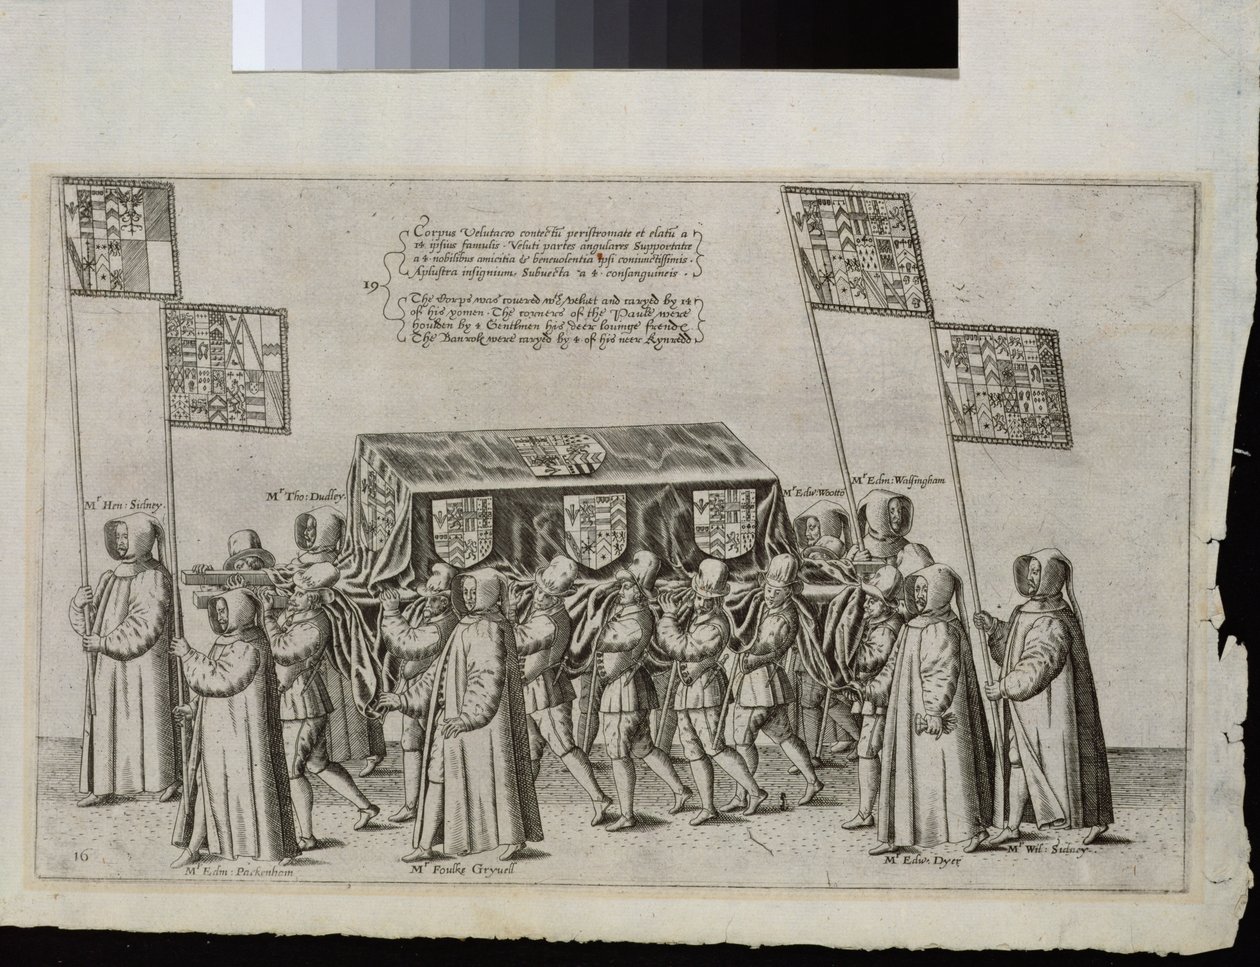 Corpus Velutaceo contectū peristromate et elatū a
14 ipsius famulis. Veluti partes angulares Supportatæ
a 4 nobilibus amicitia & beneuolentia ipsi coniunctissimis.
Aplustra insignium, Subuecta a 4 consanguineis.
19
The Corps was couered wth Veluet and caryed by 14
of his yomen. The corners of the Paule were
houlden by 4 Gentlmen his deer louinge frends
The Banrols were caryed by 4 of his neer Kynredd
Mr Edm: Walsingham
Mr Tho: Dudley
Mr Edw: Wootto
Mr Hen: Sidney
Mr Wil: Sidney
16
Mr Edw: Dyer
Mr Edm: Packenham
Mr Foulke Gryuell